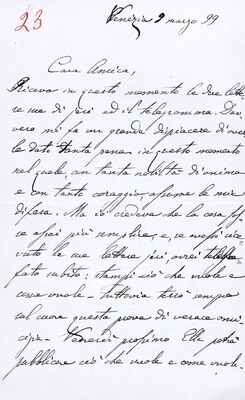 23
Venezia 9 marzo 99
Cara Amica,
Ricevo in questo momento le due lette
re sue di jeri ed il telegramma. Dav
vero mi fa un grande dispiacere di aver
le dato tanta pena in questo momento
nel quale, con tanta nobiltà d'animo
e con tanto coraggio assume la mia
difesa. Ma io credeva che la cosa fos
se assai più semplice, e, se avessi rice
vuto la sua lettera jeri, avrei telegra
fato subito: stampi ciò che vuole e
come vuole. Tuttavia terrò sempre
sul cuore questa prova di verace ami
cizia. Venerdì prossimo Ella potrà
pubblicare ciò che vuole e come vuole.